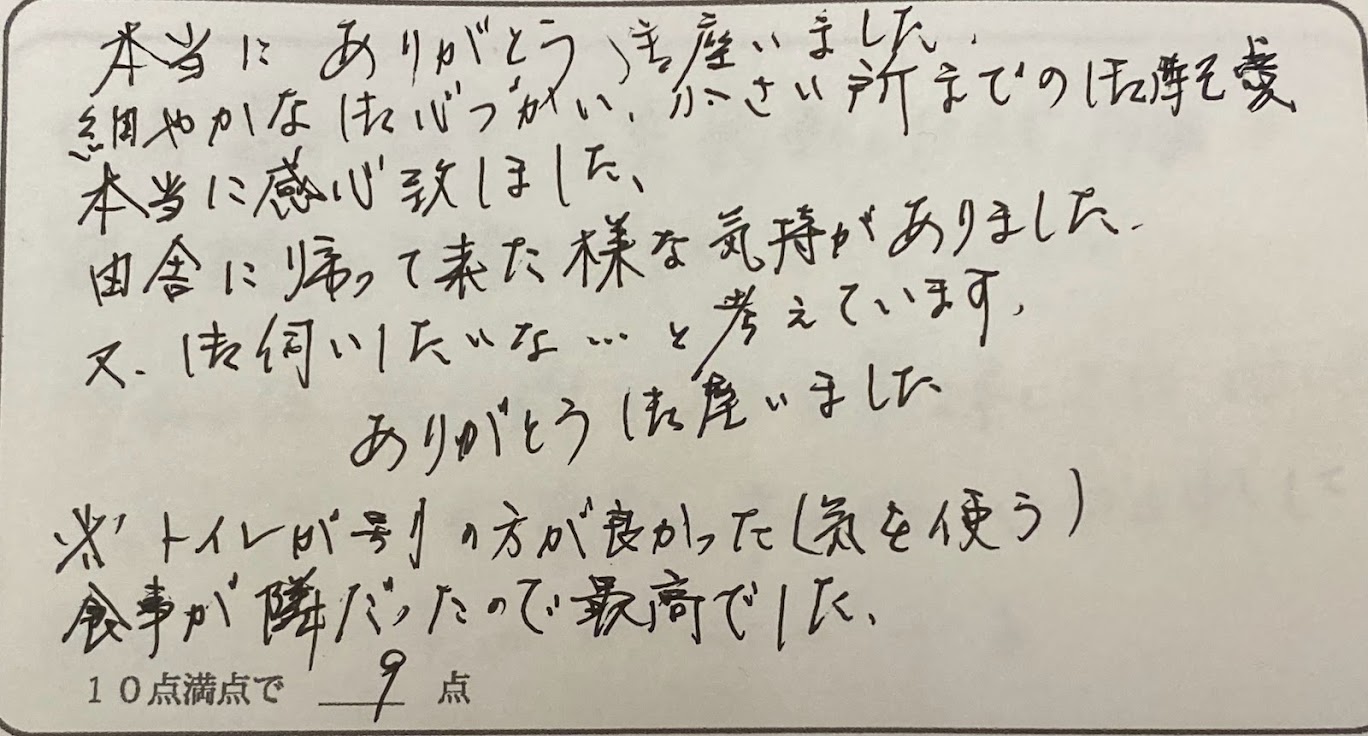 本当に ありがとう御座いました.
細やかな御心づかい、小さい所までの御
本当に感心致しました、
田舎に帰って来た様な気持がありました.
又、御伺いしたいな…と考えています,
ありがとう御座いました
トイレが別の方が良かった(気を使う)
食事が隣だったので最高でした、
10点満点で 9 点